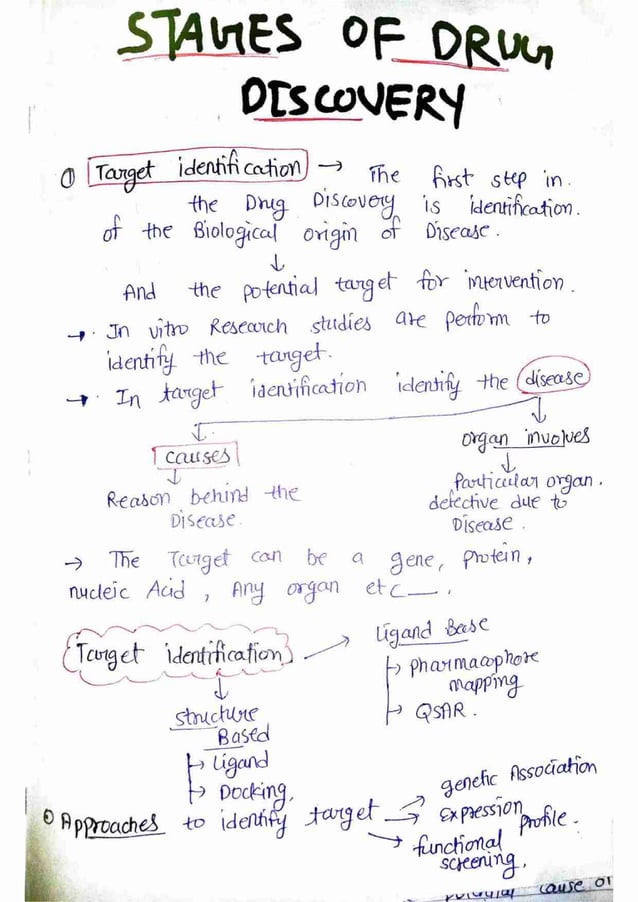 STAGES OF DRUG
DISCOVERY
① Target identification → The first step in.
the Drug Discovery is identification.
of the Biological origin of Disease.
↓
And the potential target for intervention.
→ · In vitro Research studies are perform to
identify the target.
→ · In target identification identify the disease
↓ ↓
causes
organ involves
↓ ↓
Reason behind the
Disease.
Particular organ.
defective due to
Disease.
→ The Target can be a gene, protein,
nucleic Acid, Any organ etc__.
Target identification
Ligand Base
Pharmacophore
mapping
QSAR.
structure
Based
Ligand
Docking.
Approaches to identify target
genetic Association
Expression
profile.
functional
screening.
cause of